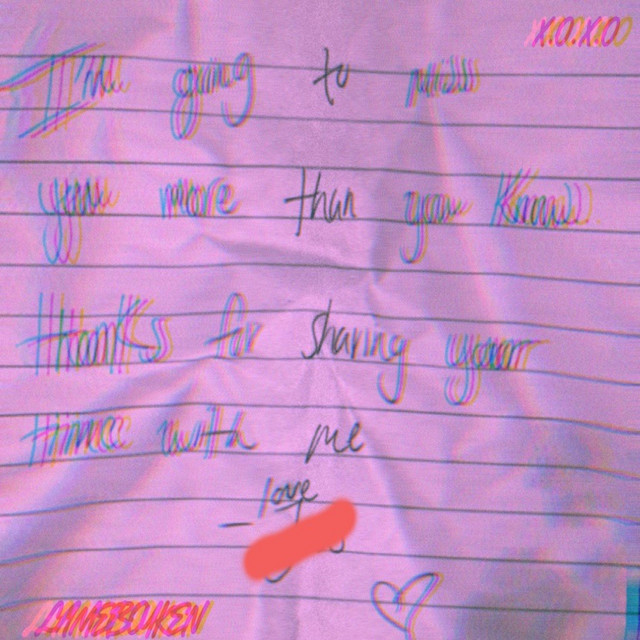 X.O.X.O
I'm going to miss
you more than you Know.
thanks for sharing your
time with me
– love